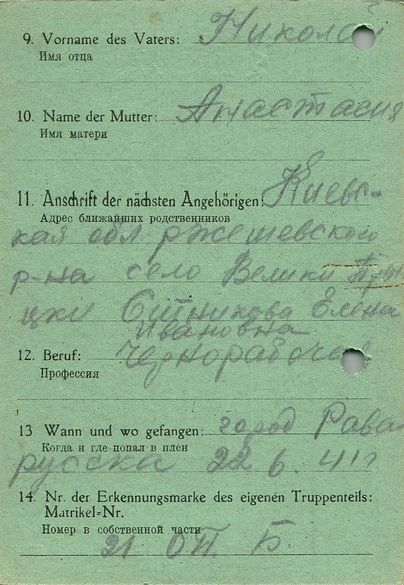 9. Vorname des Vaters: Николай
Имя отца
10. Name der Mutter: Анастасия
Имя матери
11. Anschrift der nächsten Angehörigen: Киевс-
Адрес ближайших родственников
кая обл ржешевского
р-на село Велики При
цки Ситникова Елена
Ивановна
12. Beruf: Чернорабочая
Профессия
13 Wann und wo gefangen: город Рава
Когда и где попал в плен
русска 22 6. 41
14. Nr. der Erkennungsmarke des eigenen Truppenteils:
Matrikel-Nr.
Номер в собственной части
21 ОП. Б.